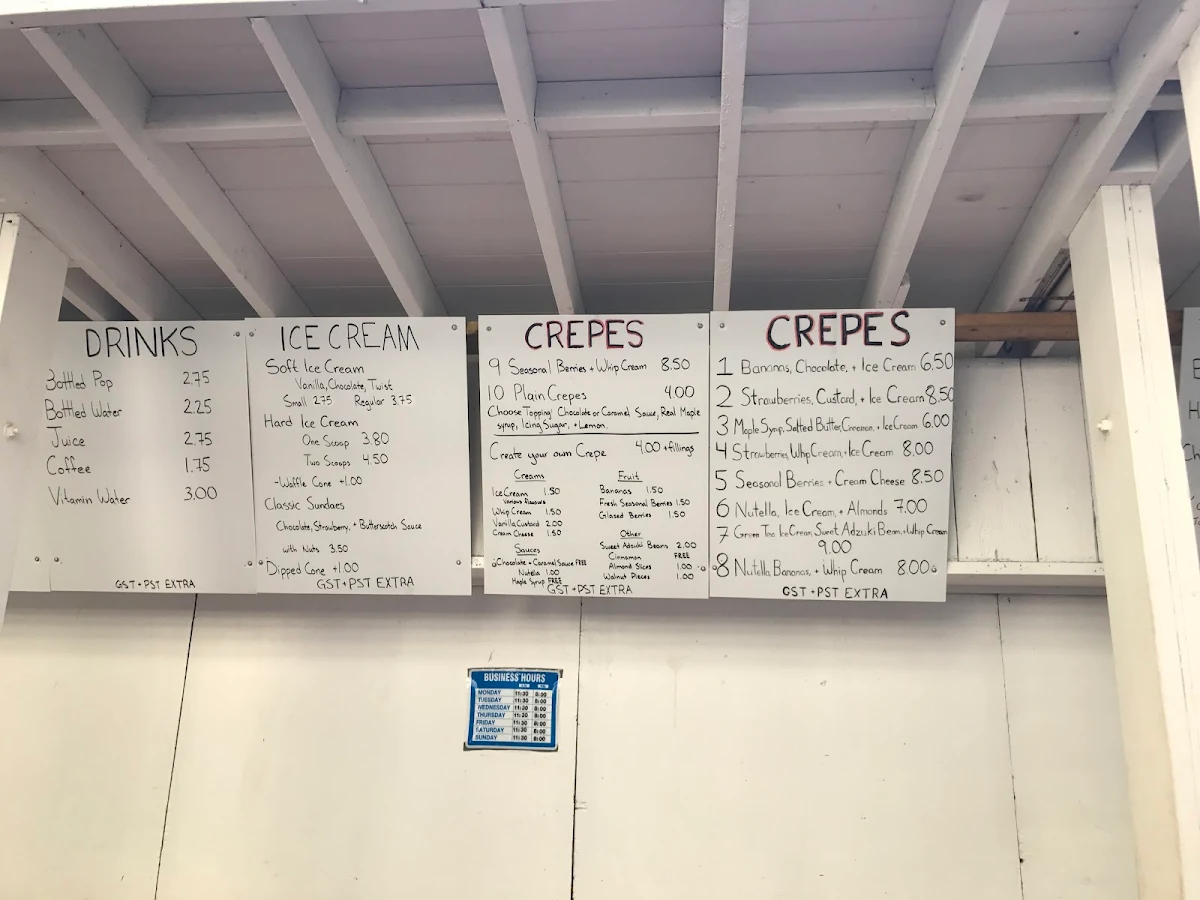 DRINKS
Bottled Pop 2.75
Bottled Water 2.25
Juice 2.75
Coffee 1.75
Vitamin Water 3.00
GST+PST EXTRA
ICE CREAM
Soft Ice Cream
Vanilla, Chocolate, Twist
Small 2.75 Regular 3.75
Hard Ice Cream
One Scoop 3.80
Two Scoops 4.50
-Waffle Cone +1.00
Classic Sundaes
Chocolate, Strawberry, + Butterscotch Sauce
with Nuts 3.50
Dipped Cone +1.00
GST+PST EXTRA
CREPES
9 Seasonal Berries + Whip Cream 8.50
10 Plain Crepes 4.00
Choose Topping: Chocolate or Caramel Sauce, Real Maple
syrup, Icing Sugar, + Lemon.
Create your own Crepe 4.00 +fillings
Creams
Ice Cream 1.50
various flavours
Whip Cream 1.50
Vanilla Custard 2.00
Cream Cheese 1.50
Sauces
Chocolate + Caramel Sauce FREE
Nutella 1.00
Maple Syrup FREE
Fruit
Bananas 1.50
Fresh Seasonal Berries 1.50
Glazed Berries 1.50
Other
Sweet Adzuki Beans 2.00
Cinnamon FREE
Almond Slices 1.00
Walnut Pieces 1.00
GST+PST EXTRA
CREPES
1 Bananas, Chocolate, + Ice Cream 6.50
2 Strawberries, Custard, + Ice Cream 8.50
3 Maple Syrup, Salted Butter, Cinnamon, + Ice Cream 6.00
4 Strawberries, Whip Cream, + Ice Cream 8.00
5 Seasonal Berries + Cream Cheese 8.50
6 Nutella, Ice Cream, + Almonds 7.00
7 Green Tea Ice Cream, Sweet Adzuki Bean, + Whip Cream
9.00
8 Nutella, Bananas, + Whip Cream 8.00
GST+PST EXTRA
BUSINESS HOURS
MONDAY 11:30 8:00
TUESDAY 11:30 8:00
WEDNESDAY 11:30 8:00
THURSDAY 11:30 8:00
FRIDAY 11:30 8:00
SATURDAY 11:30 8:00
SUNDAY 11:30 8:00